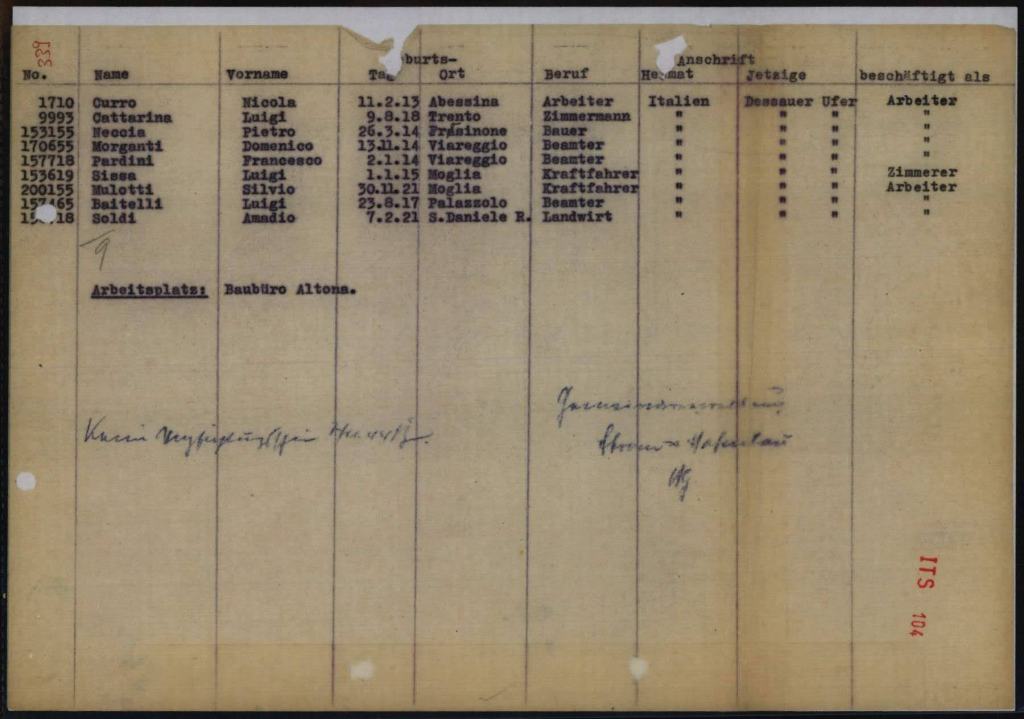 339
Geburts- Anschrift
No. Name Vorname Tag Ort Beruf Heimat Jetzige beschäftigt als
1710 Curro Nicola 11.2.13 Abessina Arbeiter Italien Dessauer Ufer Arbeiter
9993 Cattarina Luigi 9.8.18 Trento Zimmermann " " " "
153155 Neccia Pietro 26.3.14 Frosinone Bauer " " " "
170655 Morganti Domenico 13.11.14 Viareggio Beamter " " " "
157718 Pardini Francesco 2.1.14 Viareggio Beamter " " " "
153619 Sissa Luigi 1.1.15 Moglia Kraftfahrer " " " Zimmerer
200155 Mulotti Silvio 30.11.21 Moglia Kraftfahrer " " " Arbeiter
Baitelli Luigi 23.8.17 Palazzolo Beamter " " " "
Soldi Amadio 7.2.21 S.Daniele R. Landwirt " " "
9
Arbeitsplatz: Baubüro Altona.
Strom- &
ITS 104